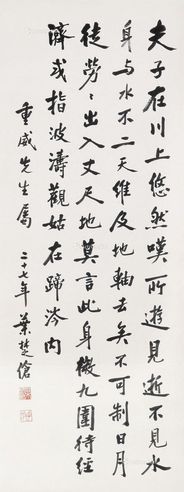 夫子在川上悠然嘆所遊見逝不見水
身與水不二天維及地軸去矣不可制日月
徒勞勞出入丈尺地莫言此身微九圍待經
濟或指波濤觀姑在蹄涔內
重威先生屬
二十七年葉楚傖